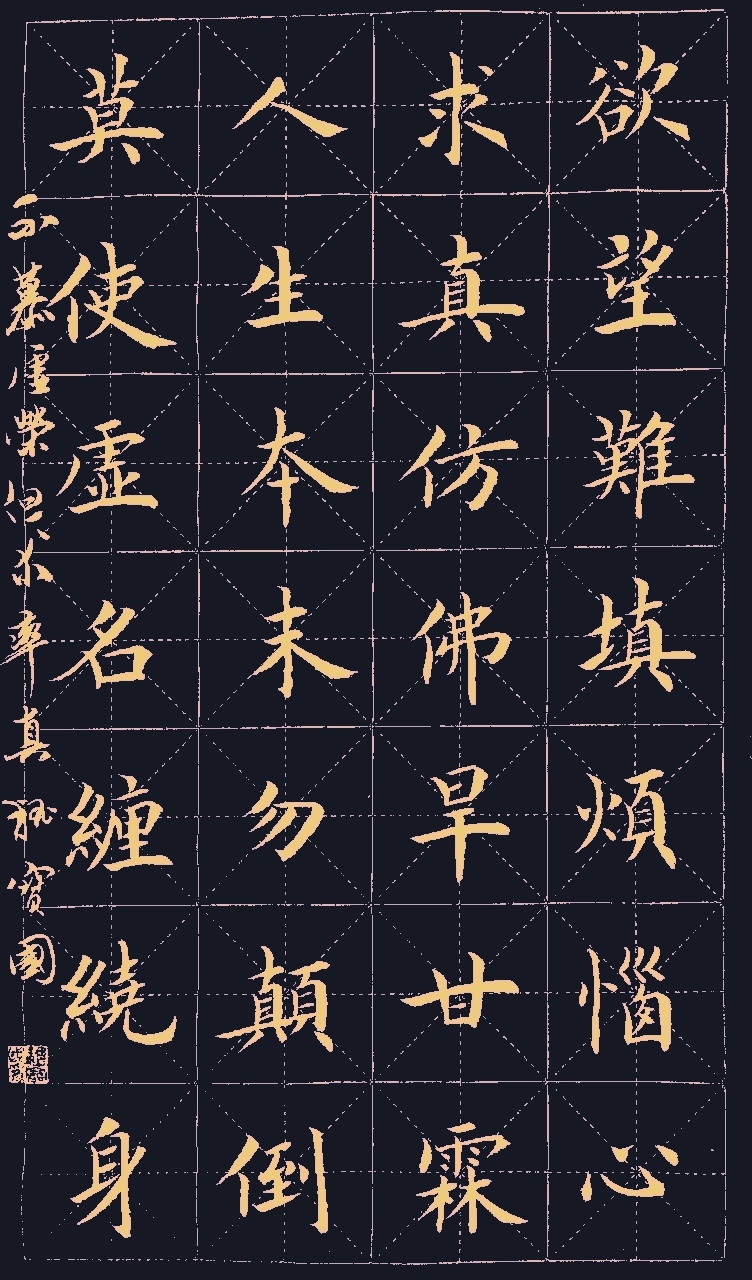 欲望難填煩惱心
求真仿佛旱甘霖
人生本末勿顛倒
莫使虛名纏繞身
不慕虛榮但求率真 寶國